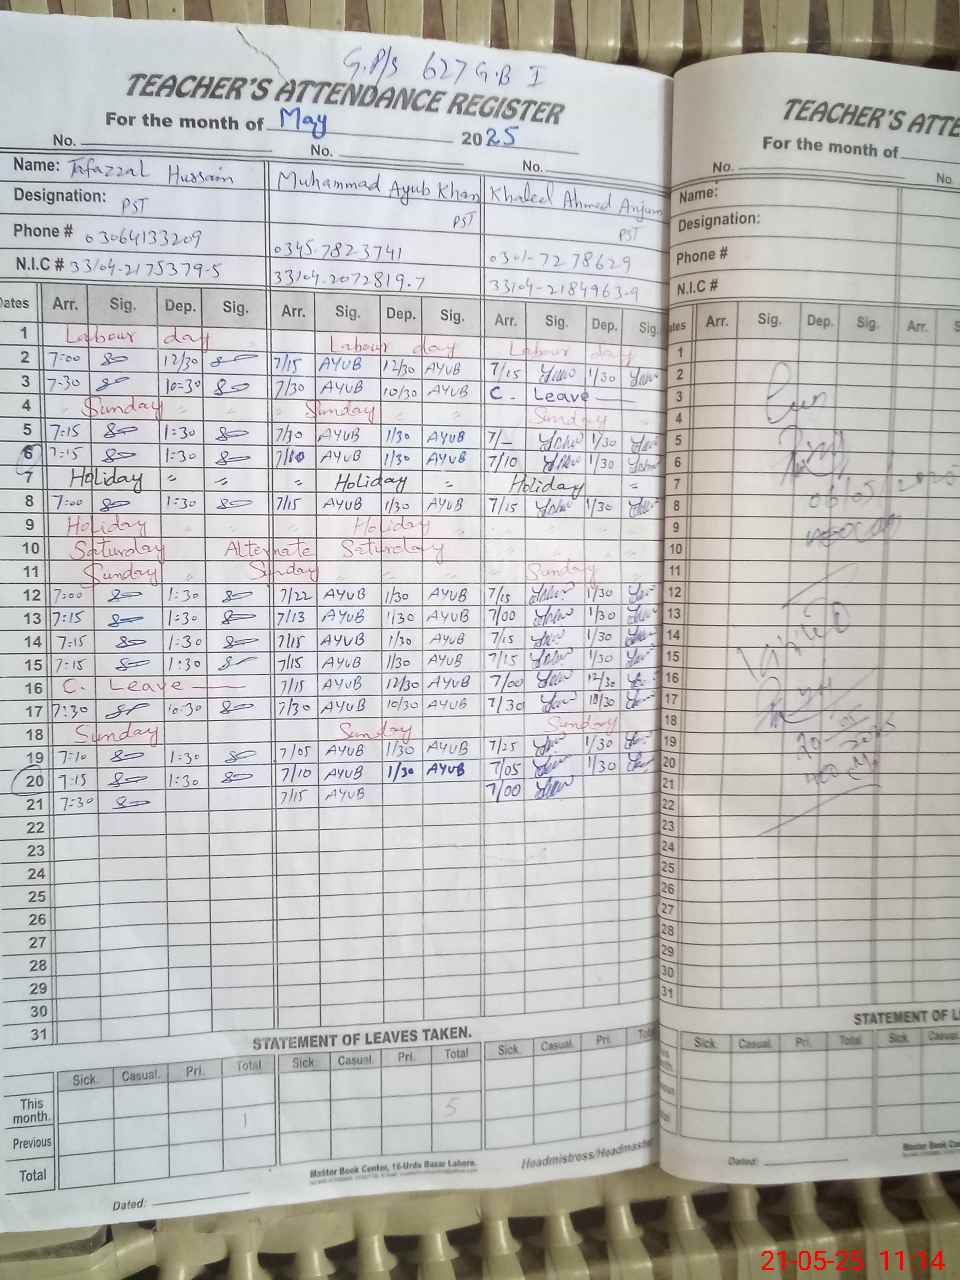 G.P/S 627 G.B I
TEACHER'S ATTENDANCE REGISTER
For the month of May 2025
No. No. No.
Name: Tafazzal Hussain Muhammad Ayub Khan Khaleel Ahmed Anjum
Designation: PST PST PST
Phone # 03064133209 0345.7823741 0301-7278629
N.I.C # 33104-2175379-5 33104.2072819.7 33104-2184963-9
Dates Arr. Sig. Dep. Sig. Arr. Sig. Dep. Sig. Arr. Sig. Dep. Sig.
1 Labour day Labour day Labour day
2 7:00 12/30 7/15 AYUB 12/30 AYUB 7/15 1/30
3 7-30 10=30 7/30 AYUB 10/30 AYUB C. Leave
4 Sunday Sunday Sunday
5 7:15 1:30 7/30 AYUB 1/30 AYUB 7/- 1/30
6 7:15 1:30 7/10 AYUB 1/30 AYUB 7/10 1/30
7 Holiday Holiday Holiday
8 7:00 1:30 7/15 AYUB 1/30 AYUB 7/15 1/30
9 Holiday Holiday
10 Saturday Alternate Saturday
11 Sunday Sunday Sunday
12 7:00 1:30 7/22 AYUB 1/30 AYUB 7/15 1/30
13 7:15 1:30 7/13 AYUB 1/30 AYUB 7/00 1/30
14 7:15 1:30 7/15 AYUB 1/30 AYUB 7/15 1/30
15 7:15 1:30 7/15 AYUB 1/30 AYUB 7/15 1/30
16 C. Leave 7/15 AYUB 12/30 AYUB 7/00 12/30
17 7:30 10:30 7/30 AYUB 10/30 AYUB 7/30 10/30
18 Sunday Sunday Sunday
19 7:10 1:30 7/05 AYUB 1/30 AYUB 7/25 1/30
20 7:15 1:30 7/10 AYUB 1/30 AYUB 7/05 1/30
21 7:30 7/15 AYUB 7/00
22
23
24
25
26
27
28
29
30
31
STATEMENT OF LEAVES TAKEN.
Sick. Casual. Pri. Total Sick. Casual. Pri. Total Sick. Casual. Pri. Total
This month. 1 5
Previous
Total
Master Book Center, 16-Urdu Bazar Lahore.
Headmistress/Headmaster
Dated:
TEACHER'S ATTE
For the month of
No. No
Name:
Designation:
Phone #
N.I.C #
ates Arr. Sig. Dep. Sig. Arr. S
1
2
3
4
5
6
7
8 06/05/2025
9
10
11
12
13
14
15
16
17
18
19
20
21
22
23
24
25
26
27
28
29
30
31
STATEMENT OF L
Sick. Casual. Pri. Total Sick. Casual.
Dated:
21-05-25 11:14